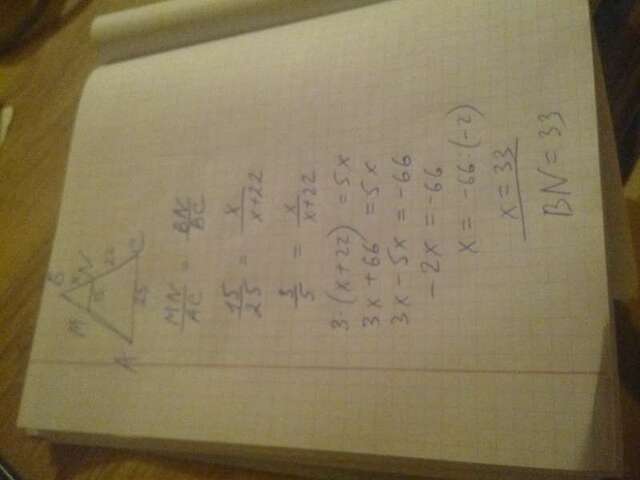 B
M
N
x
15
22
A
25
C
MN/AC = BN/BC
15/25 = x/x+22
3/5 = x/x+22
3·(x+22) = 5x
3x+66 = 5x
3x-5x = -66
-2x = -66
x = -66:(-2)
x = 33
BN = 33